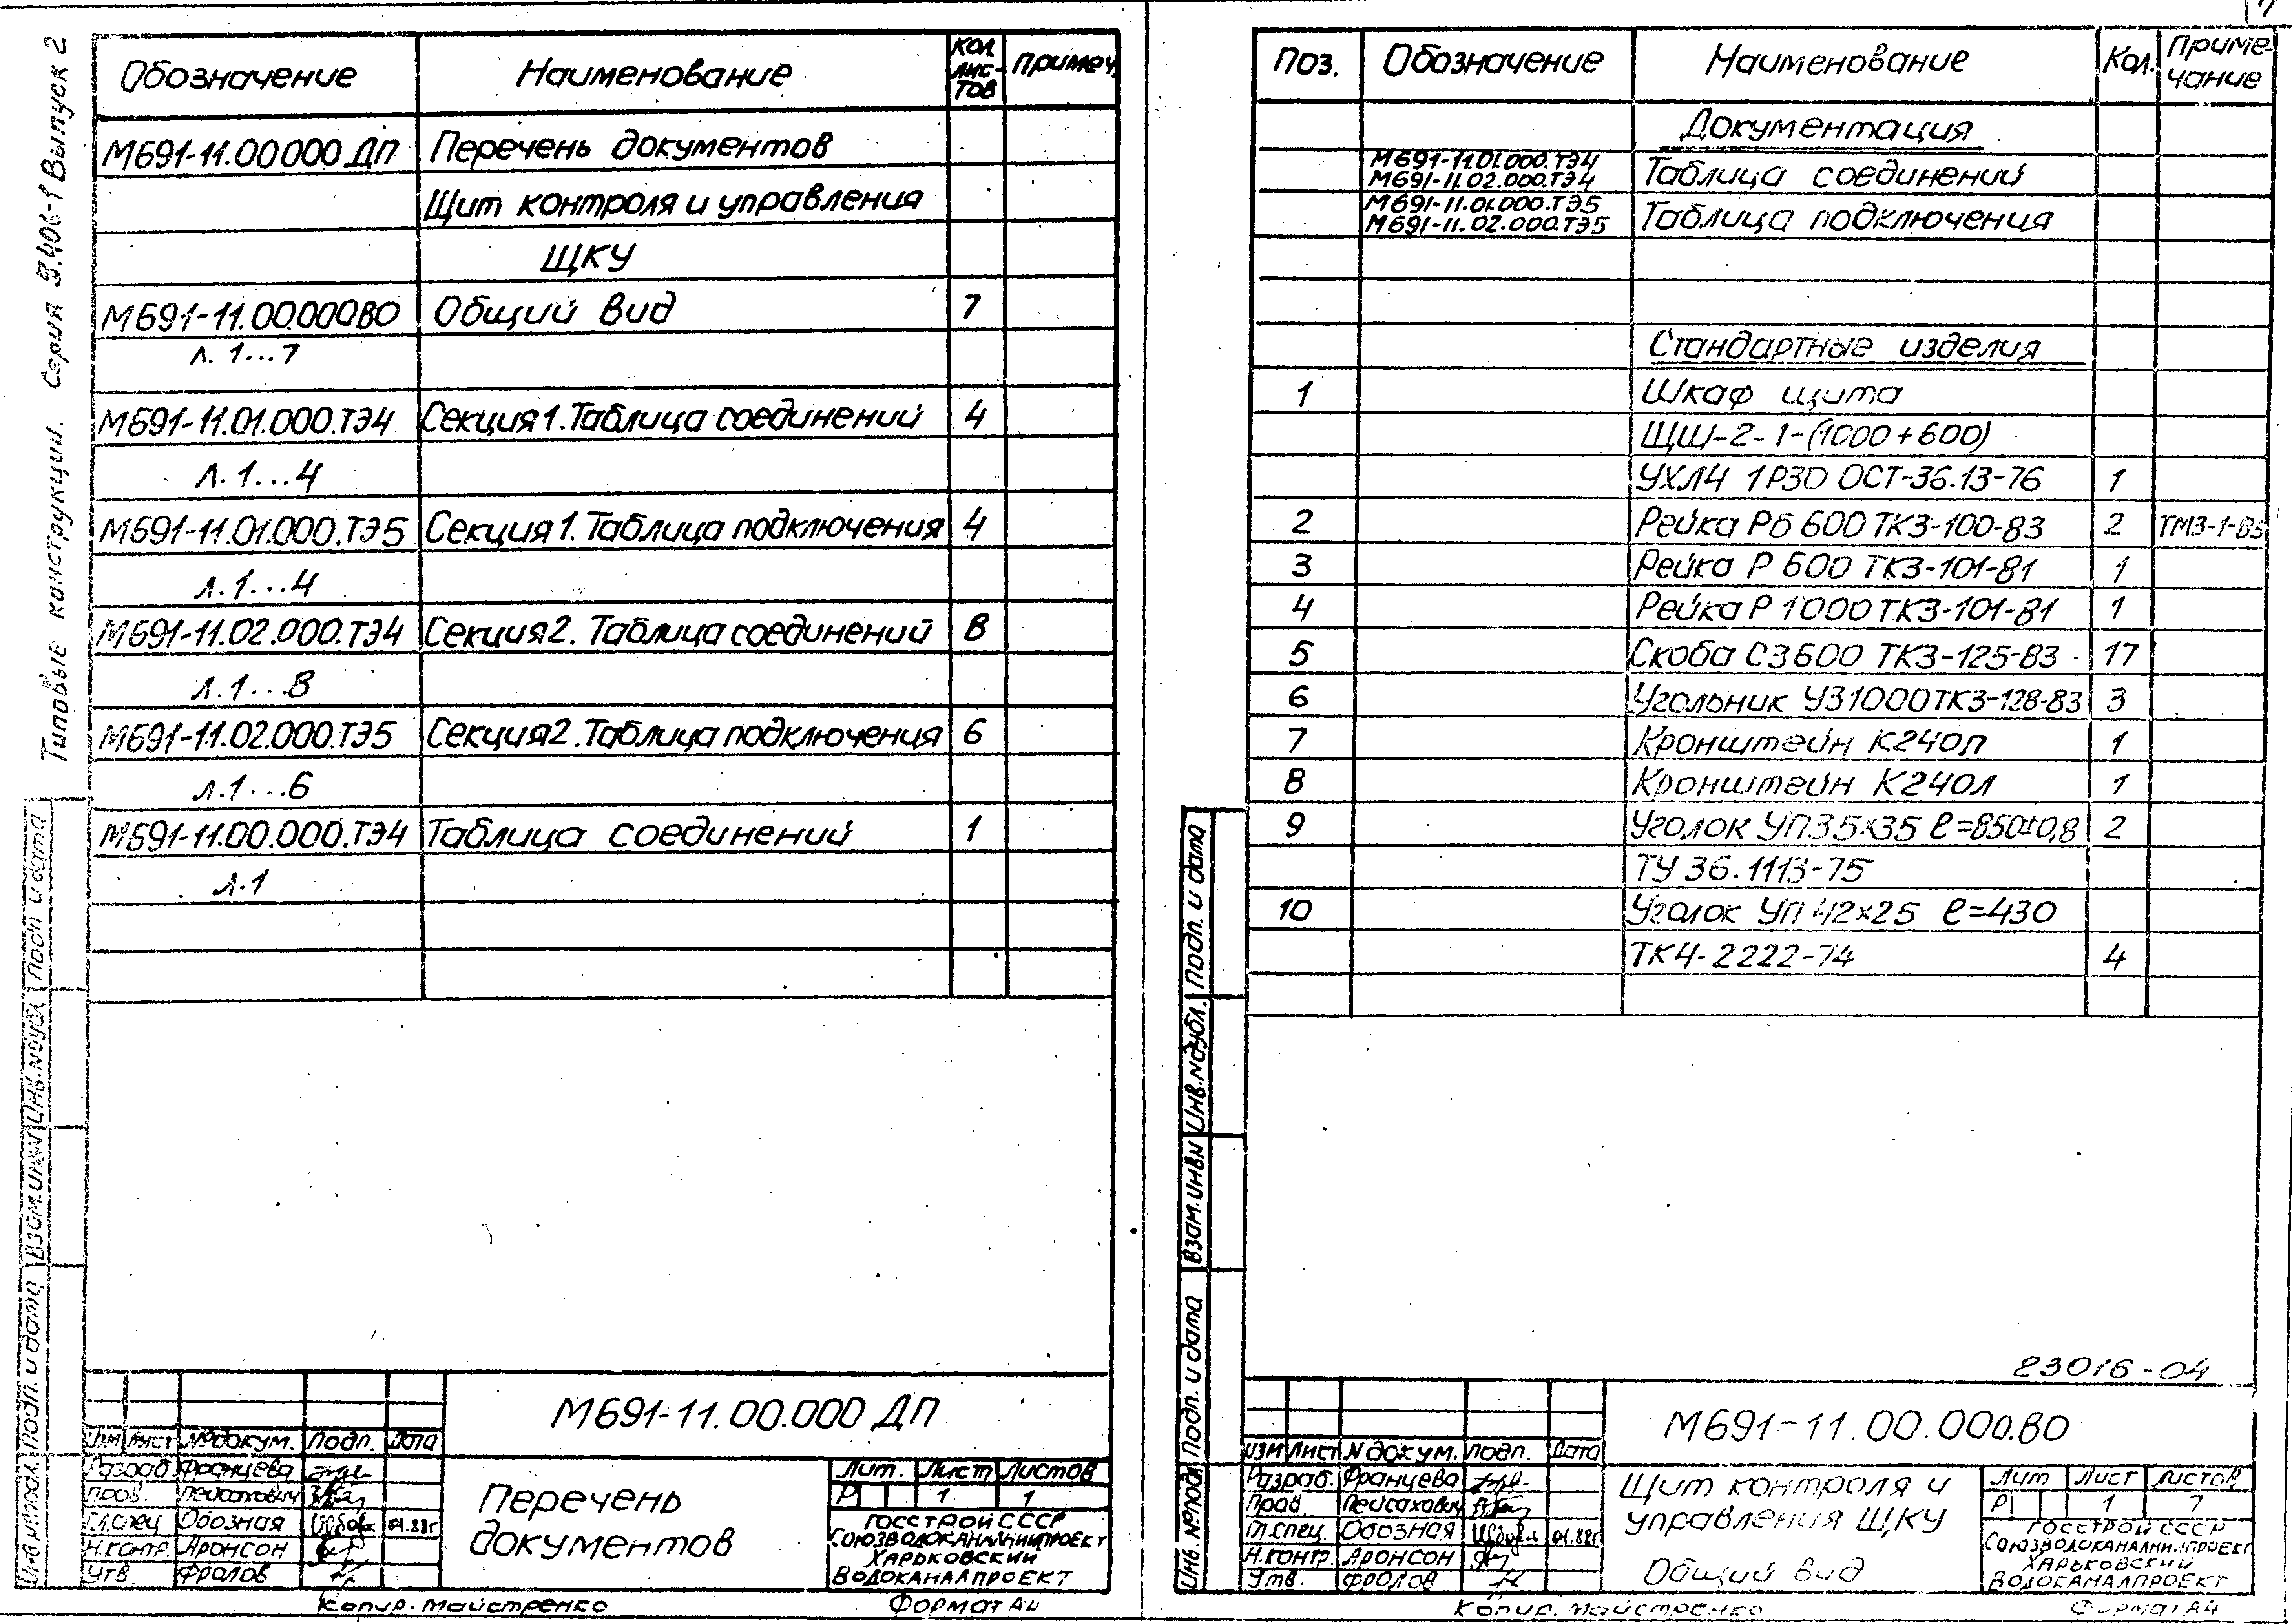 Типовые конструкции. Серия 5.406-1 Выпуск 2
Обозначение Наименование Кол. лис-тов Примеч.
М691-11.00000 ДП Перечень документов
Щит контроля и управления
ЩКУ
М691-11.00.000ВО Общий вид 7
л. 1...7
М691-11.01.000.ТЭ4 Секция 1. Таблица соединений 4
л. 1...4
М691-11.01.000.ТЭ5 Секция 1. Таблица подключения 4
л. 1...4
М691-11.02.000.ТЭ4 Секция 2. Таблица соединений 8
л. 1...8
М691-11.02.000.ТЭ5 Секция 2. Таблица подключения 6
л. 1...6
М691-11.00.000.ТЭ4 Таблица соединений 1
л. 1
Инв.№подл. Подп. и дата Взам.инв№ Инв.№дубл. Подп. и дата
М691-11.00.000 ДП
Изм Лист №докум. Подп. Дата
Разраб Францева
Пров. Пейсахович
Гл.спец Обозная 01.88г
Н.контр. Аронсон
Утв Фролов
Перечень
документов
Лит. Лист Листов
Р 1 1
ГОССТРОЙ СССР
СОЮЗВОДОКАНАЛНИИПРОЕКТ
ХАРЬКОВСКИЙ
ВОДОКАНАЛПРОЕКТ
Копир. Майстренко Формат А4
7
Поз. Обозначение Наименование Кол. Приме-чание
Документация
М691-11.01.000.ТЭ4
М691-11.02.000.ТЭ4 Таблица соединений
М691-11.01.000.ТЭ5
М691-11.02.000.ТЭ5 Таблица подключения
Стандартные изделия
1 Шкаф щита
ЩШ-2-1-(1000+600)
УХЛ4 1Р30 ОСТ-36.13-76 1
2 Рейка Рб 600 ТК3-100-83 2 ТМ3-1-85
3 Рейка Р 600 ТК3-101-81 1
4 Рейка Р 1000 ТК3-101-81 1
5 Скоба С3600 ТК3-125-83 17
6 Угольник У31000ТК3-128-83 3
7 Кронштейн К240П 1
8 Кронштейн К240Л 1
9 Уголок УП35×35 ℓ=850±0,8 2
ТУ 36.1113-75
10 Уголок УП 42×25 ℓ=430
ТК4-2222-74 4
Инв. №подл Подп. и дата Взам.инв№ Инв.№дубл. Подп. и дата
23016-04
М691-11.00.000.ВО
Изм Лист №докум. Подп. Дата
Разраб. Францева
Пров. Пейсахович
Гл.спец. Обозная 01.88г
Н.контр. Аронсон
Утв. Фролов
Щит контроля и
управления ЩКУ
Общий вид
Лит Лист Листов
Р 1 7
ГОССТРОЙ СССР
СОЮЗВОДОКАНАЛНИИПРОЕКТ
ХАРЬКОВСКИЙ
ВОДОКАНАЛПРОЕКТ
Копир. Майстренко Формат А4